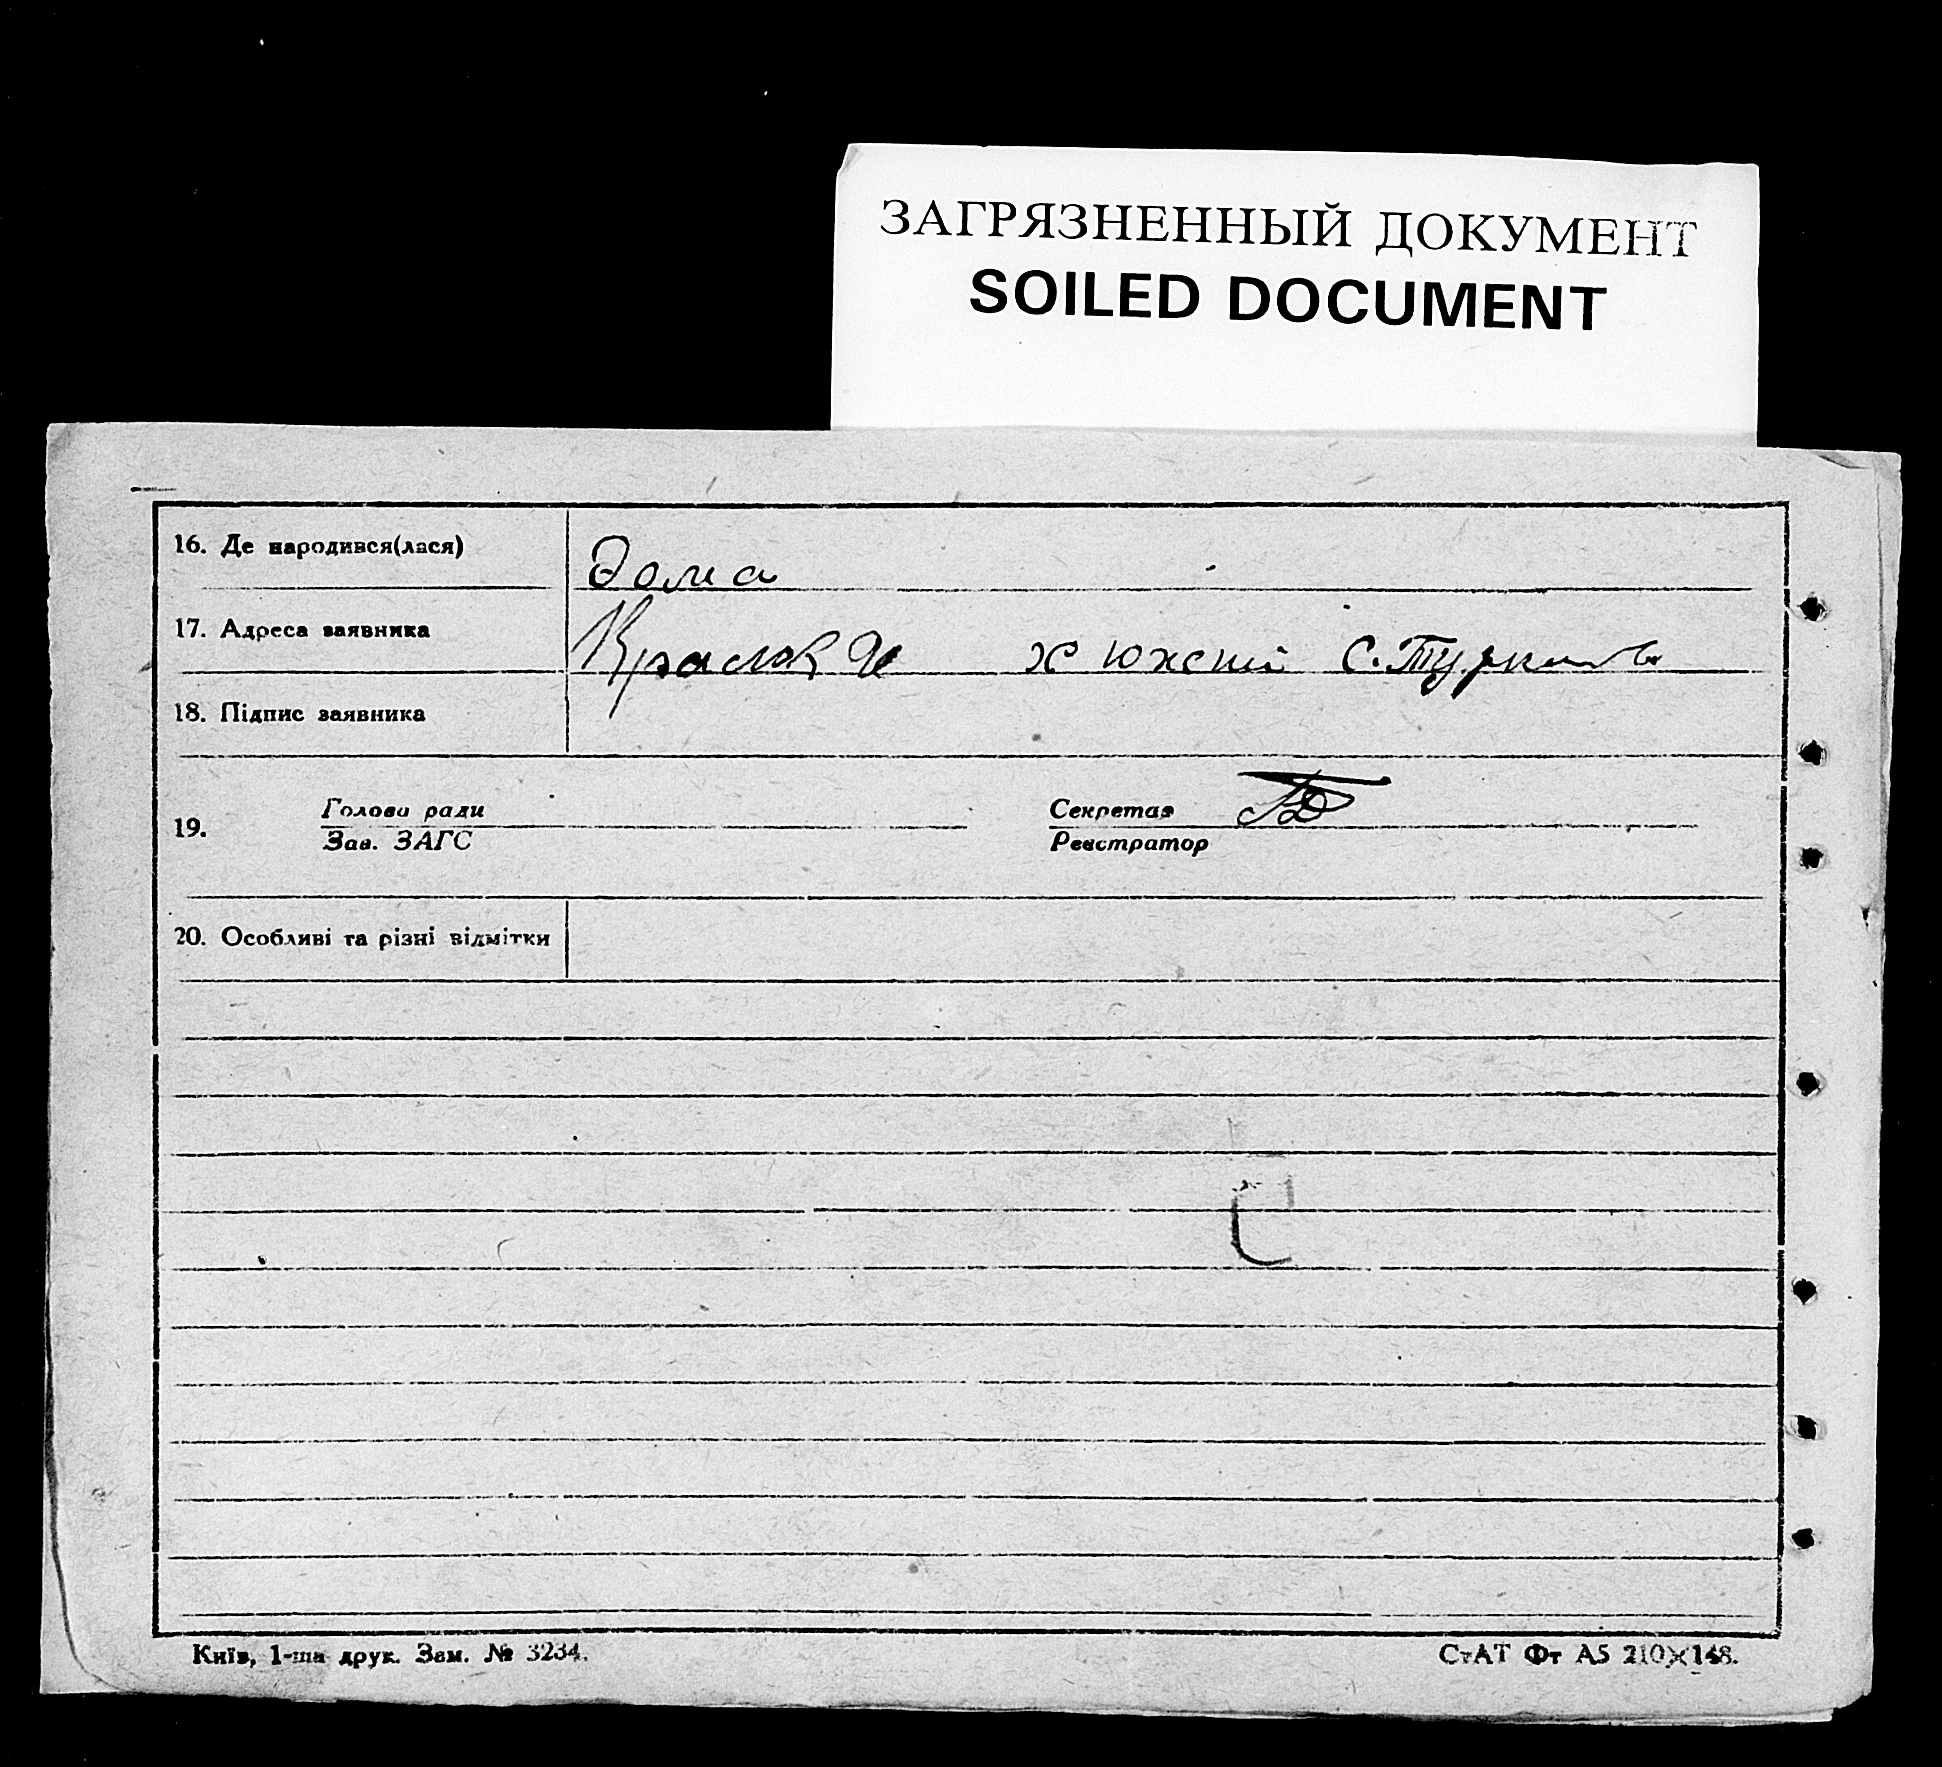 ЗАГРЯЗНЕННЫЙ ДОКУМЕНТ
SOILED DOCUMENT
16. Де народився(лася)
дома
17. Адреса заявника
х С.
18. Підпис заявника
19.
Голова ради
Зав. ЗАГС
Секретар
Реєстратор
20. Особливі та різні відмітки
Київ, 1-ша друк. Зам. № 3234.
СтАТ Фт А5 210×148.